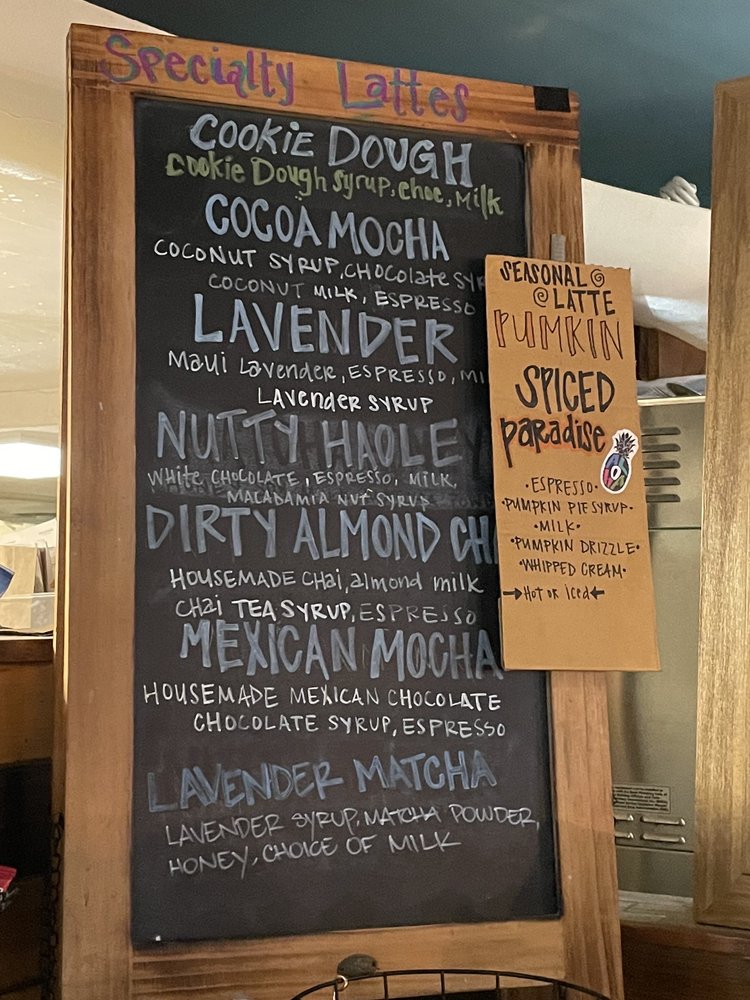 Specialty Lattes
COOKIE DOUGH
Cookie Dough Syrup, choc, Milk
COCOA MOCHA
COCONUT SYRUP, CHOCOLATE SYR
COCONUT MILK, ESPRESSO
LAVENDER
Maui Lavender, ESPRESSO, MI
LAVENDER SYRUP
NUTTY HAOLE
WHITE CHOCOLATE, ESPRESSO, MILK,
MACADAMIA NUT SYRUP
DIRTY ALMOND CH
HOUSEMADE Chai, almond milk
Chai TEA SYRUP, ESPRESSO
MEXICAN MOCHA
HOUSEMADE MEXICAN CHOCOLATE
CHOCOLATE SYRUP, ESPRESSO
LAVENDER MATCHA
LAVENDER SYRUP, MATCHA POWDER,
HONEY, CHOICE OF MILK
SEASONAL
LATTE
PUMKIN
SPICED
paradise
• ESPRESSO •
• PUMPKIN PIE SYRUP •
• MILK •
• PUMPKIN DRIZZLE •
• WHIPPED CREAM •
→ Hot or Iced ←